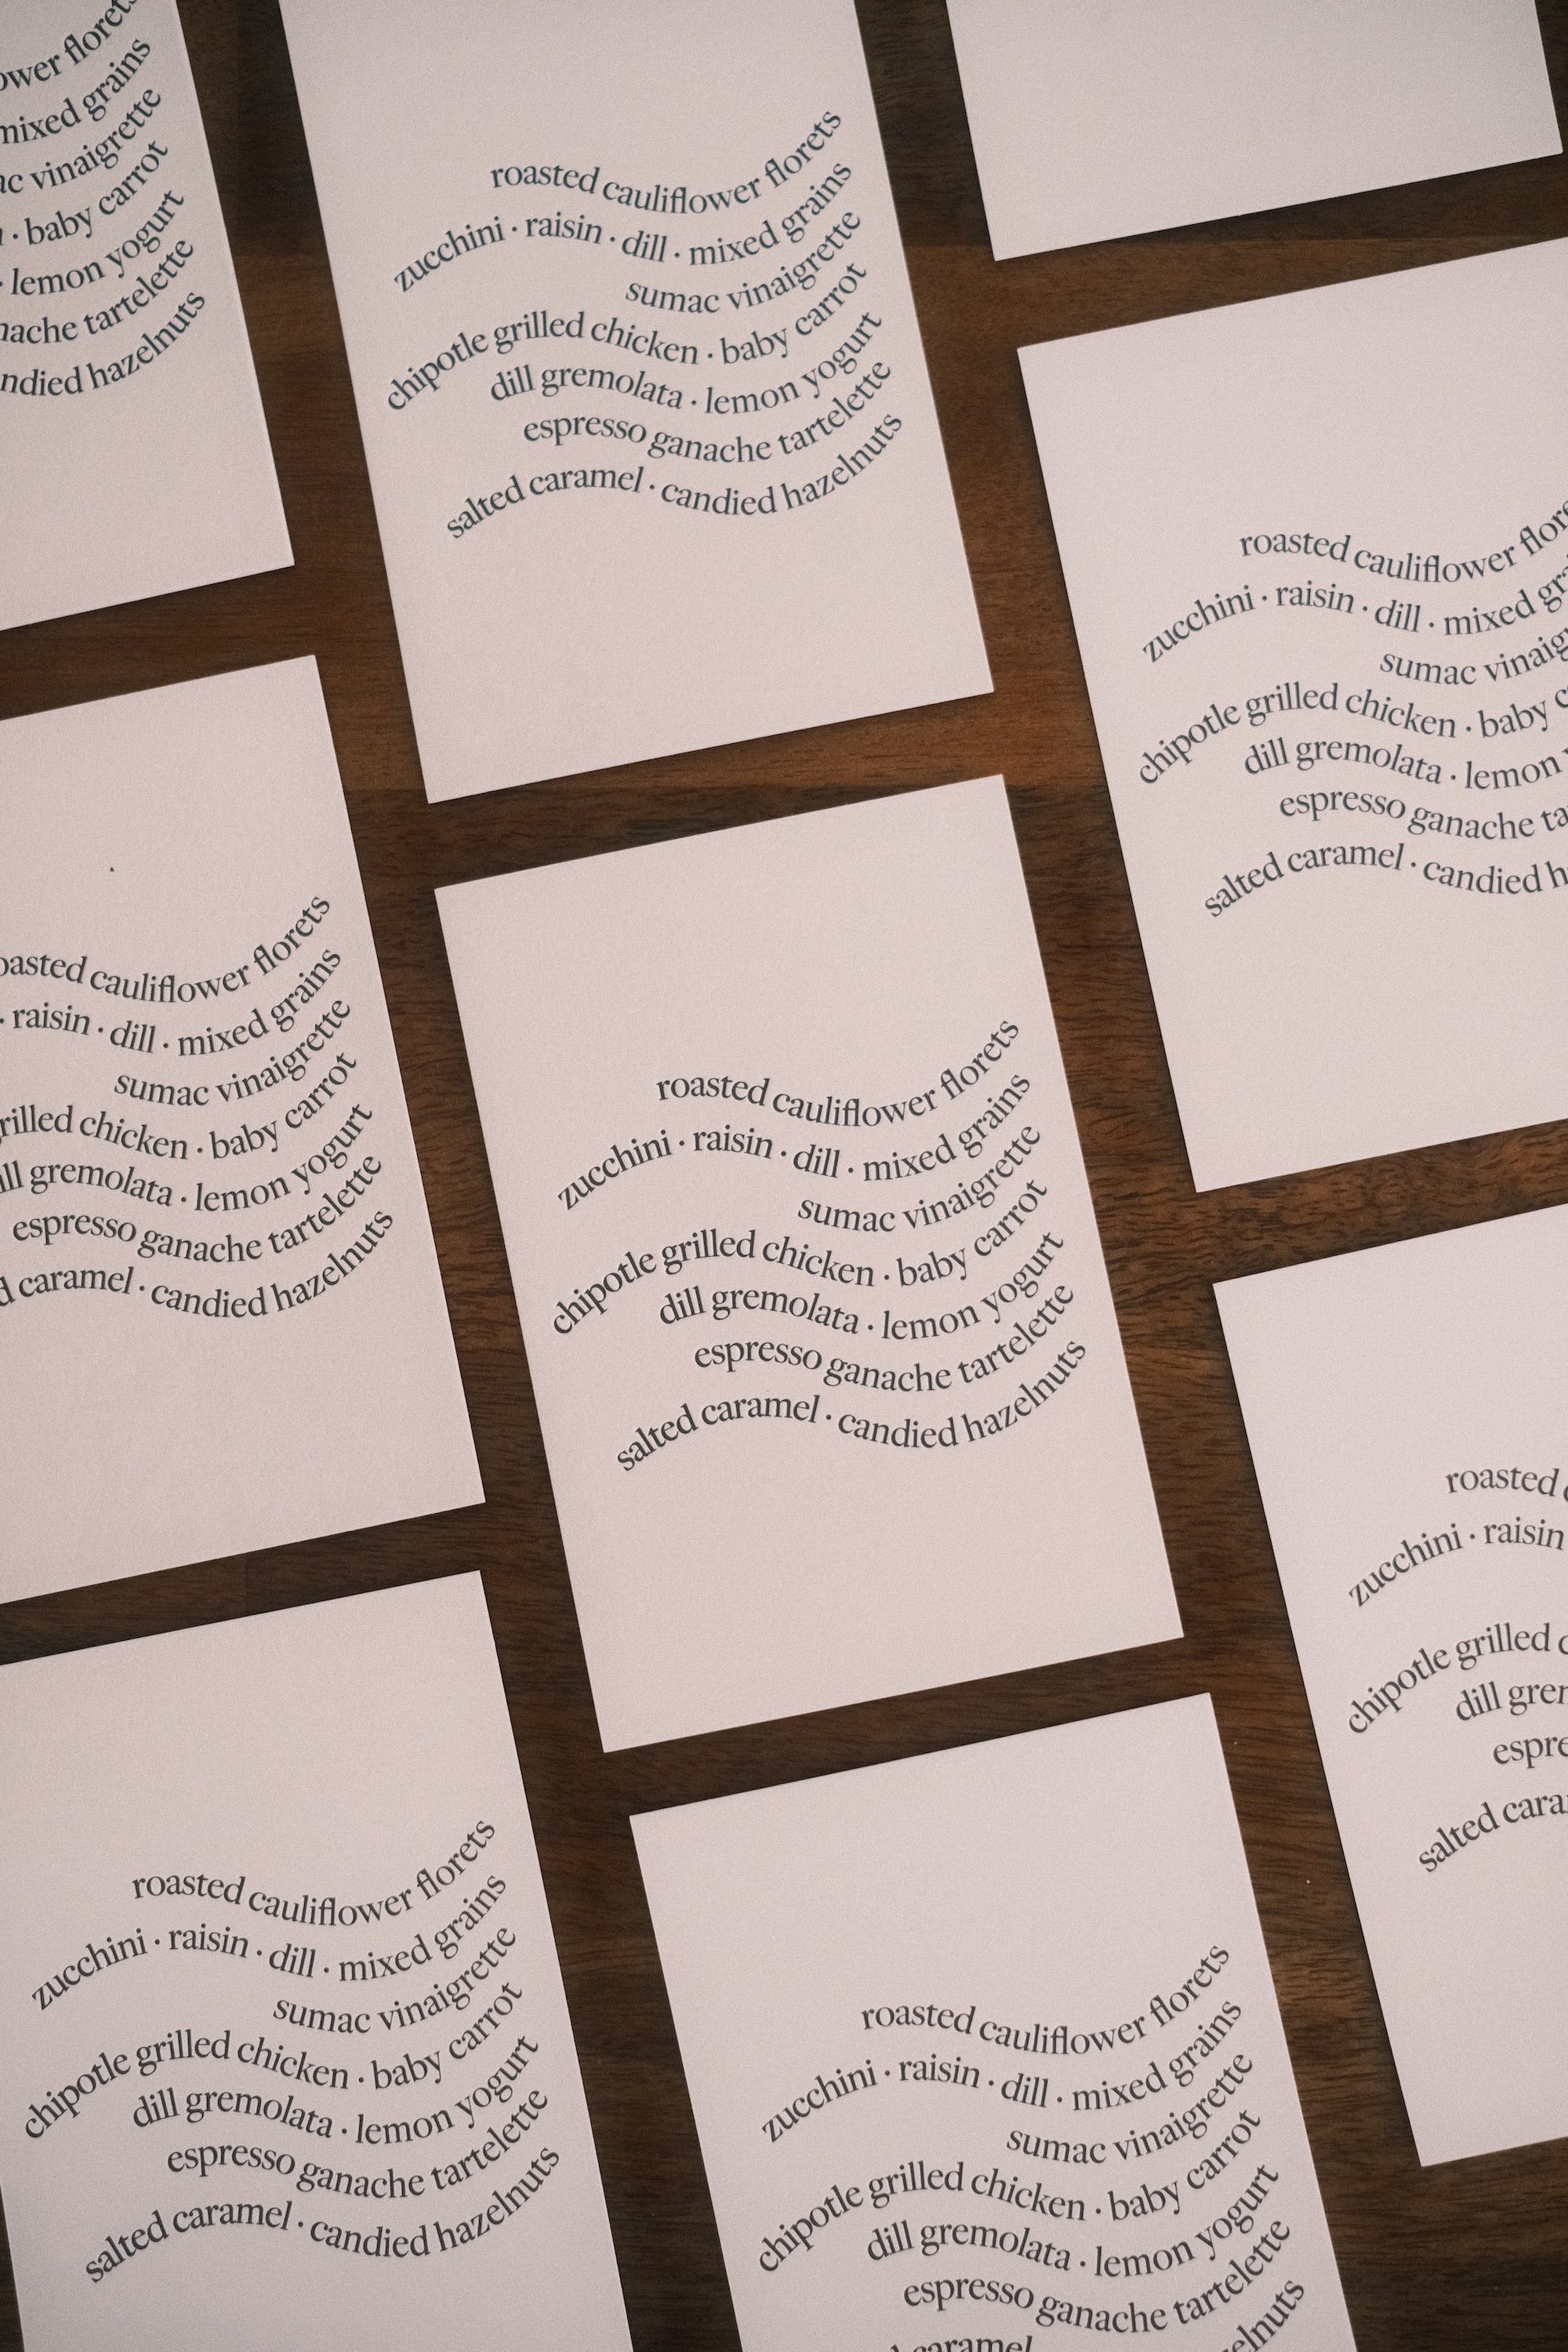 ower florets
mixed grains
vinaigrette
· baby carrot
· lemon yogurt
tartelette
hazelnuts
roasted cauliflower florets
zucchini · raisin · dill · mixed grains
sumac vinaigrette
chipotle grilled chicken · baby carrot
dill gremolata · lemon yogurt
espresso ganache tartelette
salted caramel · candied hazelnuts
roasted cauliflower
zucchini · raisin · dill · mixed
sumac
chipotle grilled chicken · baby
dill gremolata · lemon
espresso ganache
salted caramel · candied
cauliflower florets
· raisin · dill · mixed grains
sumac vinaigrette
chicken · baby carrot
gremolata · lemon yogurt
espresso ganache tartelette
caramel · candied hazelnuts
roasted cauliflower florets
zucchini · raisin · dill · mixed grains
sumac vinaigrette
chipotle grilled chicken · baby carrot
dill gremolata · lemon yogurt
espresso ganache tartelette
salted caramel · candied hazelnuts
roasted
zucchini · raisin
chipotle grilled
dill
salted
roasted cauliflower florets
zucchini · raisin · dill · mixed grains
sumac vinaigrette
chipotle grilled chicken · baby carrot
dill gremolata · lemon yogurt
espresso ganache tartelette
salted caramel · candied hazelnuts
roasted cauliflower florets
zucchini · raisin · dill · mixed grains
sumac vinaigrette
chipotle grilled chicken · baby carrot
dill gremolata · lemon yogurt
espresso ganache tartelette